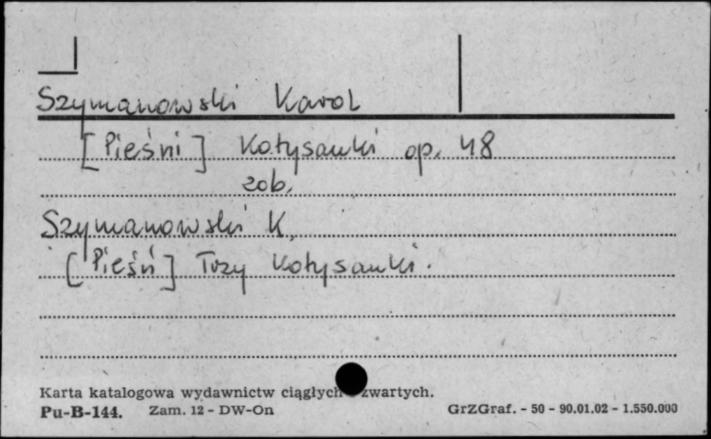 Szymanowski Karol
[Pieśni] Kołysanki op. 48
zob.
Szymanowski K.
[Pieśń] Trzy kołysanki.
Karta katalogowa wydawnictw ciągłych zwartych.
Pu-B-144. Zam. 12 - DW-On GrZGraf. - 50 - 90.01.02 - 1.550.000